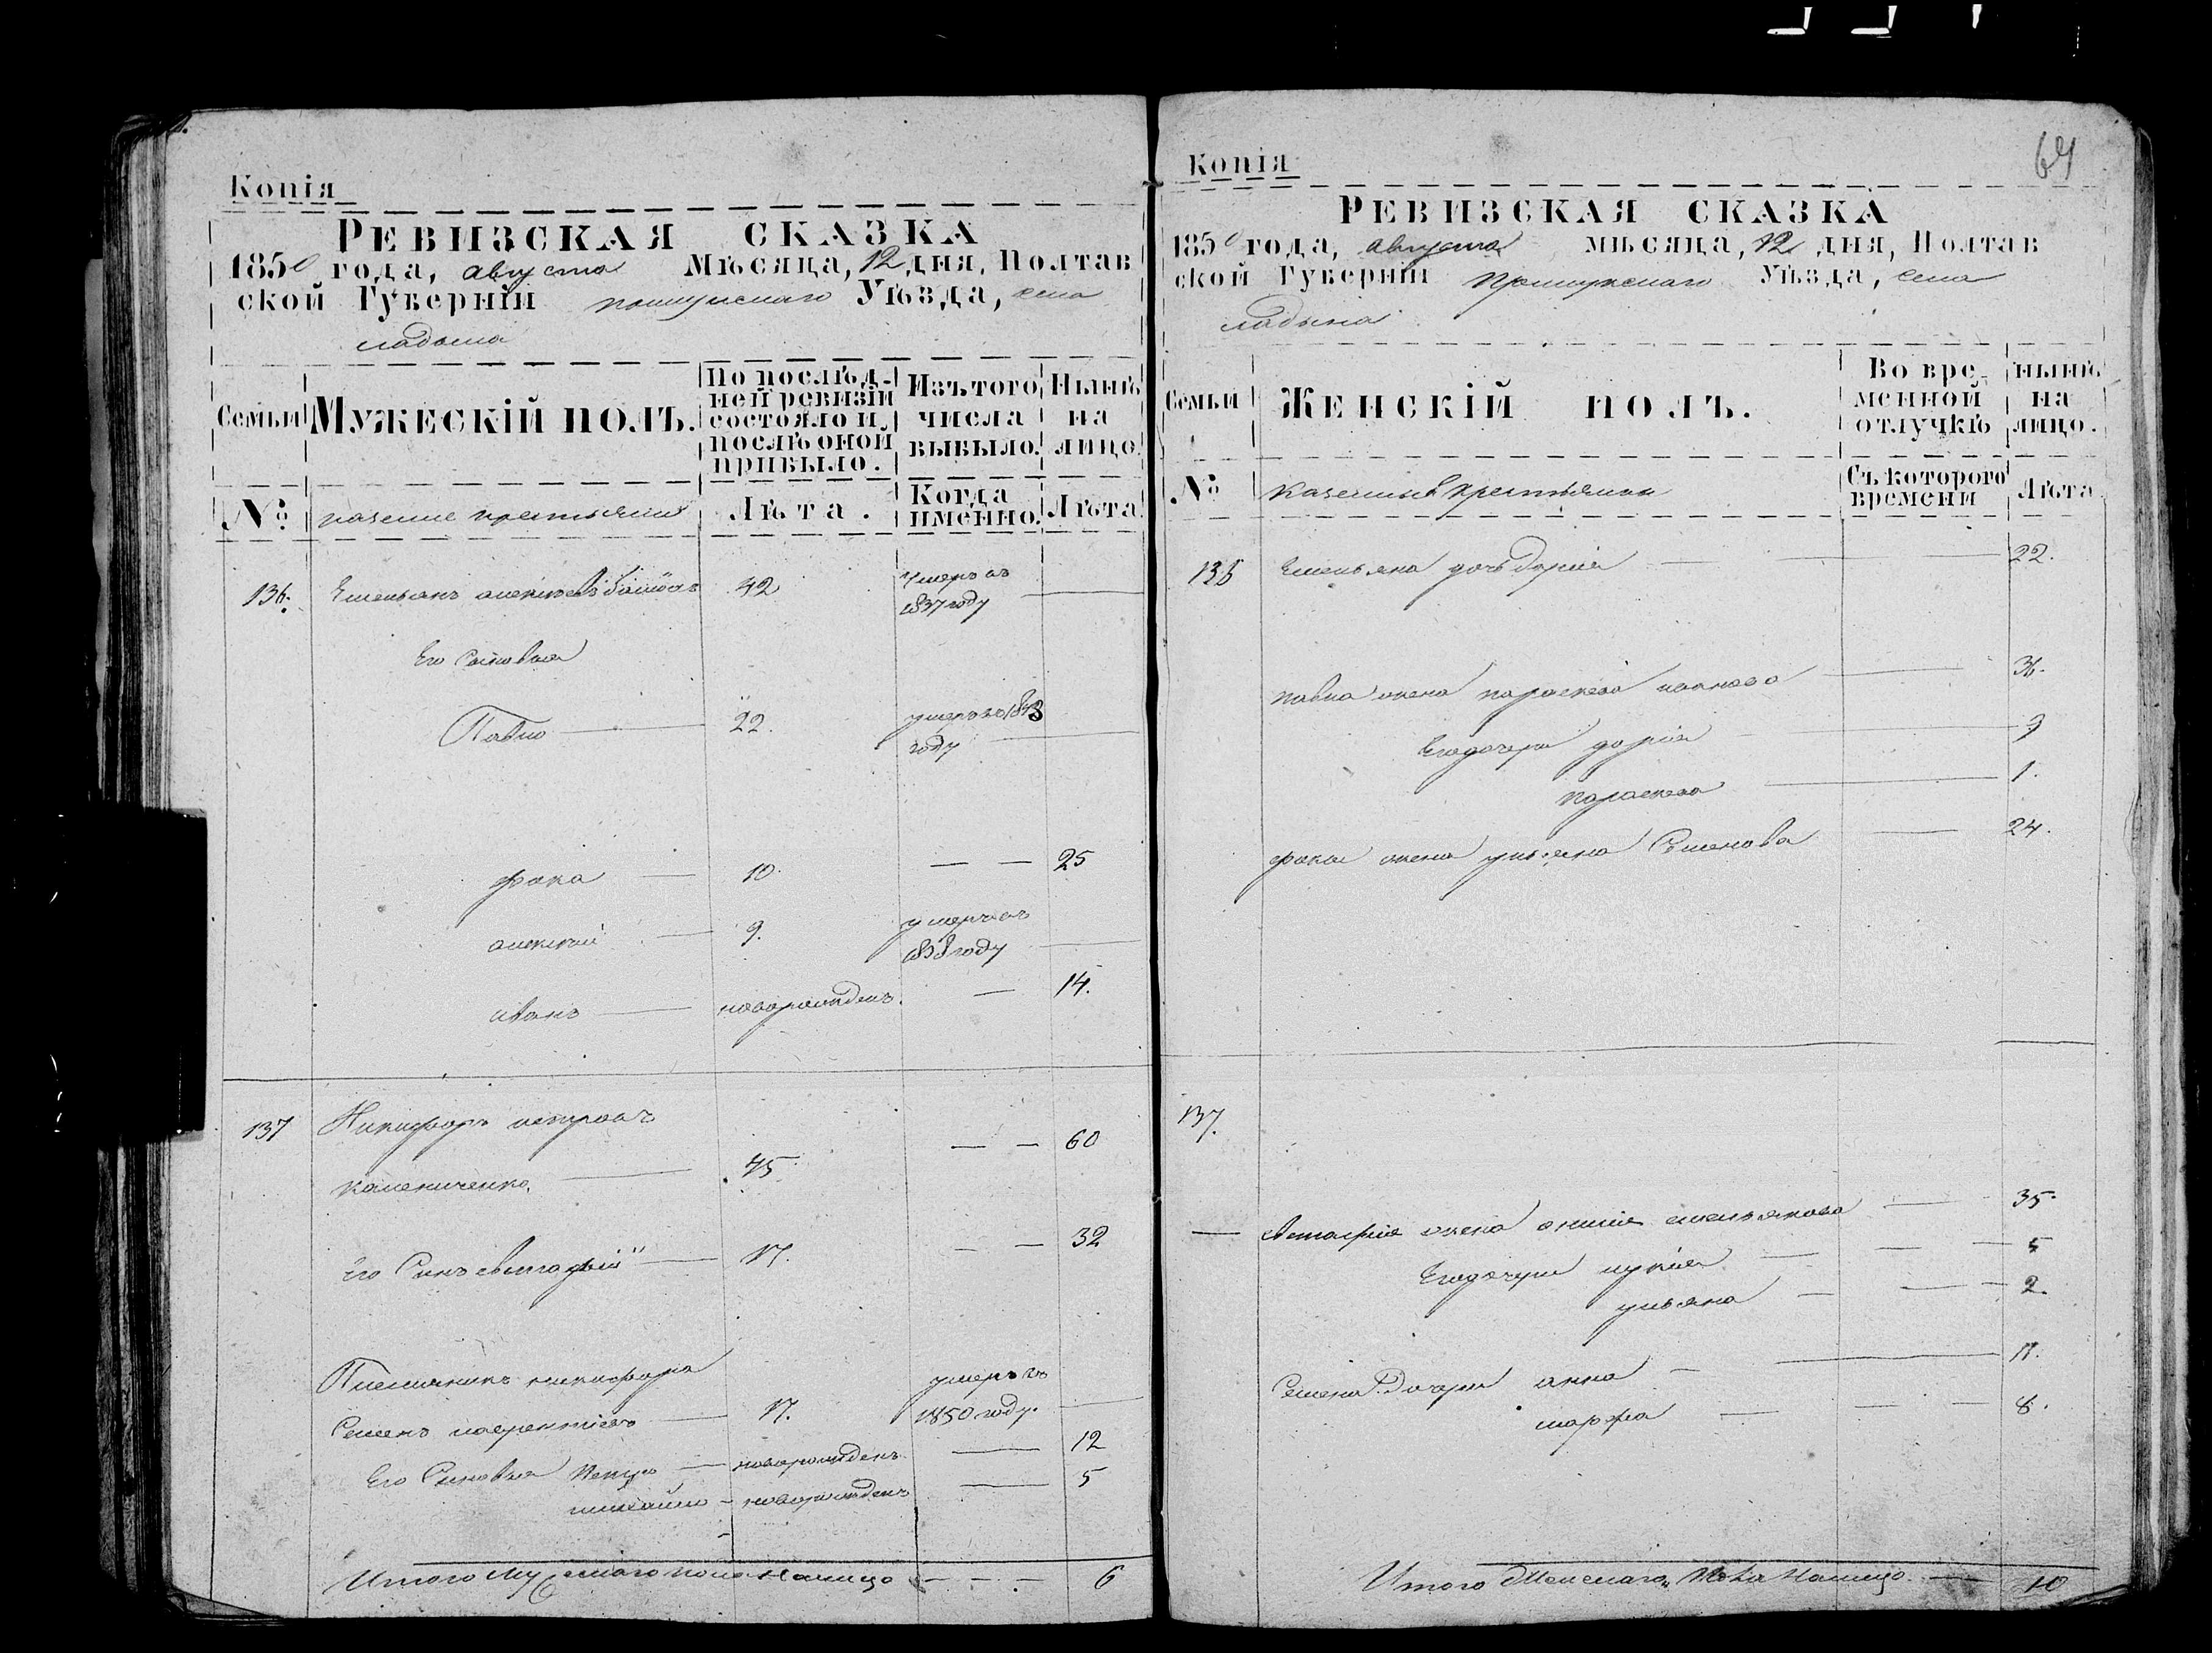 Копія
РЕВИЗСКАЯ СКАЗКА
1850 года, августа Мѣсяца, 12 дня, Полтав
ской Губерніи Уѣзда, села
ладына
Семьи
МУЖЕСКІЙ ПОЛЪ.
По послѣд-
ней ревизіи
состояло и
послѣ оной
прибыло.
Изъ того
числа
выбыло.
Нынѣ
на
лицо.
№
казенные крестьяне
Лѣта.
Когда
именно.
Лѣта
136. Емельянъ алексѣевъ 42 Умеръ въ
1837 году
Его Сыновья
Павло 22. умеръ въ 1843
году
фока 10. 25
алексѣй 9. умеръ въ
1838 году
иванъ новорожденъ. 14.
137 Никифоръ петровъ 60
каленниченко. 45
Его Сынъ евстафій 17. 32
Племянникъ никифора умеръ въ
Семенъ лаврентіевъ 17. 1850 году.
Его Сыновья петро новорожденъ 12
михайло новорожденъ 5
Итого Мужескаго пола налицо 6
64
Копія
РЕВИЗСКАЯ СКАЗКА
1850 года, августа мѣсяца, 12 дня, Полтав
ской Губерніи Прилукскаго Уѣзда, села
ладына
Семьи
ЖЕНСКІЙ ПОЛЪ.
Во вре-
менной
отлучкѣ
нынѣ
на
лицо.
№
казенныѣ крестьянки
Съ котораго
времени
Лѣта
136 Емельяна дочь дарія 22.
павла жена параскева иванова
Его дочери дарія 9
параскева 1.
фоки жена ульяна Семенова 24.
137.
Евстафія жена емельянова 35.
Его дочери лукія 5
ульяна 2.
Семена дочери анна 11.
марфа 8.
Итого Женскаго Пола Налицо 10